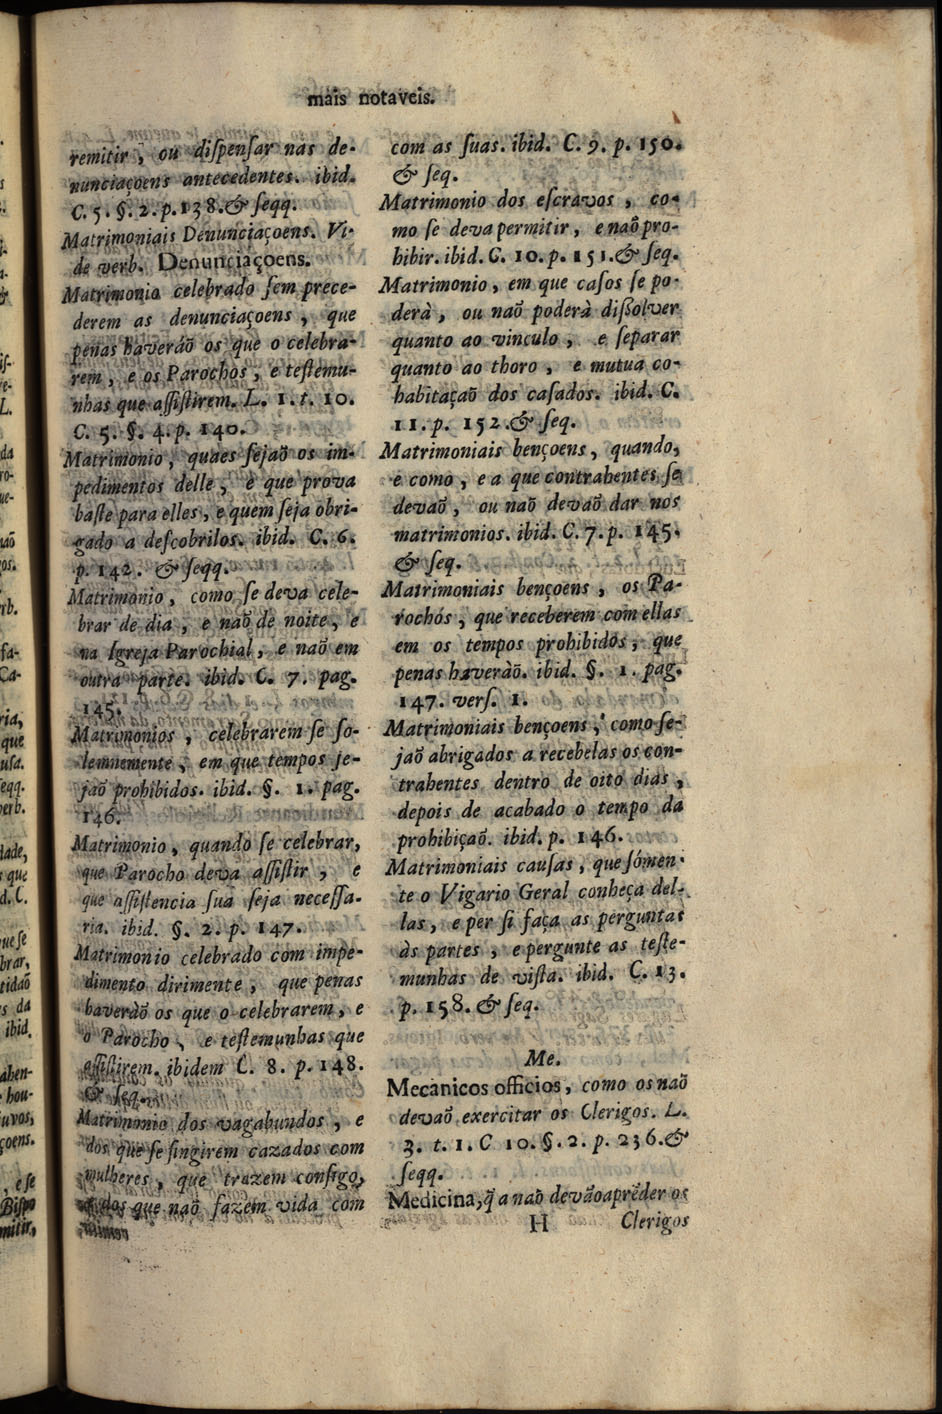 mais notaveis.
remitir, ou diſpenſar nas de-
nunciaçoens antecedentes. ibid.
C. 5. §. 2. p. 138. & ſeqq.
Matrimoniais Denunciaçoens. Vi-
de verb. Denunciaçoens.
Matrimonio celebrado ſem prece-
derem as denunciaçoens, que
penas haveráõ os que o celebra-
rem, e os Parochos, e teſtemu-
nhas que aſſiſtirem. L. 1. t. 10.
C. 5. §. 4. p. 140.
Matrimonio, quaes ſejaõ os im-
pedimentos delle, e que prova
baſte para elles, e quem ſeja obri-
gado a deſcobrilos. ibid. C. 6.
p. 142. & ſeqq.
Matrimonio, como ſe deva cele-
brar de dia, e naõ de noite, e
na Igreja Parochial, e naõ em
outra parte. ibid. C. 7. pag.
145.
Matrimonios, celebrarem ſe ſo-
lemnemente, em que tempos ſe-
jaõ prohibidos. ibid. §. 1. pag.
146.
Matrimonio, quando ſe celebrar,
que Parocho deva aſſiſtir, e
que aſſiſtencia ſua ſeja neceſſa-
ria. ibid. §. 2. p. 147.
Matrimonio celebrado com impe-
dimento dirimente, que penas
haveràõ os que o celebrarem, e
o Parocho, e teſtemunhas que
aſſiſtirem. ibidem C. 8. p. 148.
& ſeq.
Matrimonio dos vagabundos, e
dos que ſe fingirem cazados com
mulheres, que trazem conſigo,
e dos que naõ fazem vida com
com as ſuas. ibid. C. 9. p. 150.
& ſeq.
Matrimonio dos eſcravos, co-
mo ſe deva permitir, e naõ pro-
hibir. ibid. C. 10. p. 151. & ſeq.
Matrimonio, em que caſos ſe po-
derà, ou naõ poderà diſſolver
quanto ao vinculo, e ſeparar
quanto ao thoro, e mutua co-
habitaçaõ dos caſados. ibid. C.
11. p. 152. & ſeq.
Matrimoniais bençoens, quando,
e como, e a que contrahentes ſe
devaõ, ou naõ devaõ dar nos
matrimonios. ibid. C. 7. p. 145.
& ſeq.
Matrimoniais bençoens, os Pa-
rochós, que receberem com ellas
em os tempos prohibidos, que
penas haveràõ. ibid. §. 1. pag.
147. verſ. 1.
Matrimoniais bençoens, como ſe-
jaõ abrigados a recebelas os con-
trahentes dentro de oito dias,
depois de acabado o tempo da
prohibiçaõ. ibid. p. 146.
Matrimoniais cauſas, que ſómen-
te o Vigario Geral conheça del-
las, e per ſi faça as perguntas
às partes, e pergunte as teſte-
munhas de viſta. ibid. C. 13.
p. 158. & ſeq.
Me.
Mecànicos officios, como os naõ
devaõ exercitar os Clerigos. L.
3. t. 1. C 10. §. 2. p. 236. &
ſeqq.
Medicina, q̃ a naõ devãoaprẽder os
H Clerigos